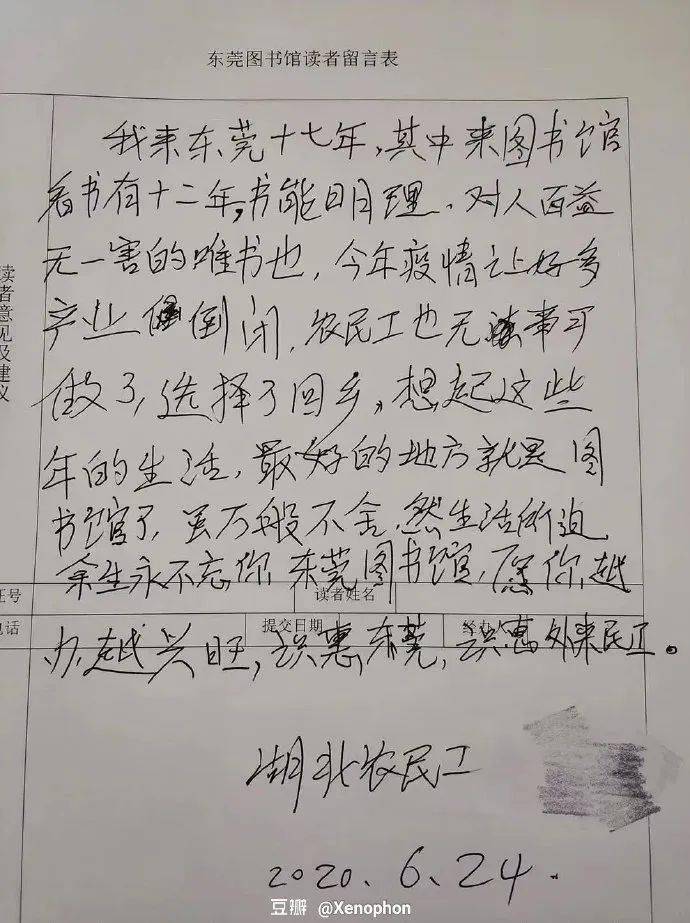 东莞图书馆读者留言表
读者意见及建议
我来东莞十七年,其中来图书馆
看书有十二年,书能明理,对人百益
无一害的唯书也,今年疫情让好多
产业倒闭,农民工也无事可
做了,选择了回乡,想起这些
年的生活,最好的地方就是图
书馆了,虽万般不舍,然生活所迫
余生永不忘你,东莞图书馆,愿你越
证号 读者姓名
电话 提交日期 经办人
办越兴旺,识惠东莞,识惠外来民工。
湖北农民工
2020.6.24.
豆瓣 @Xenophon